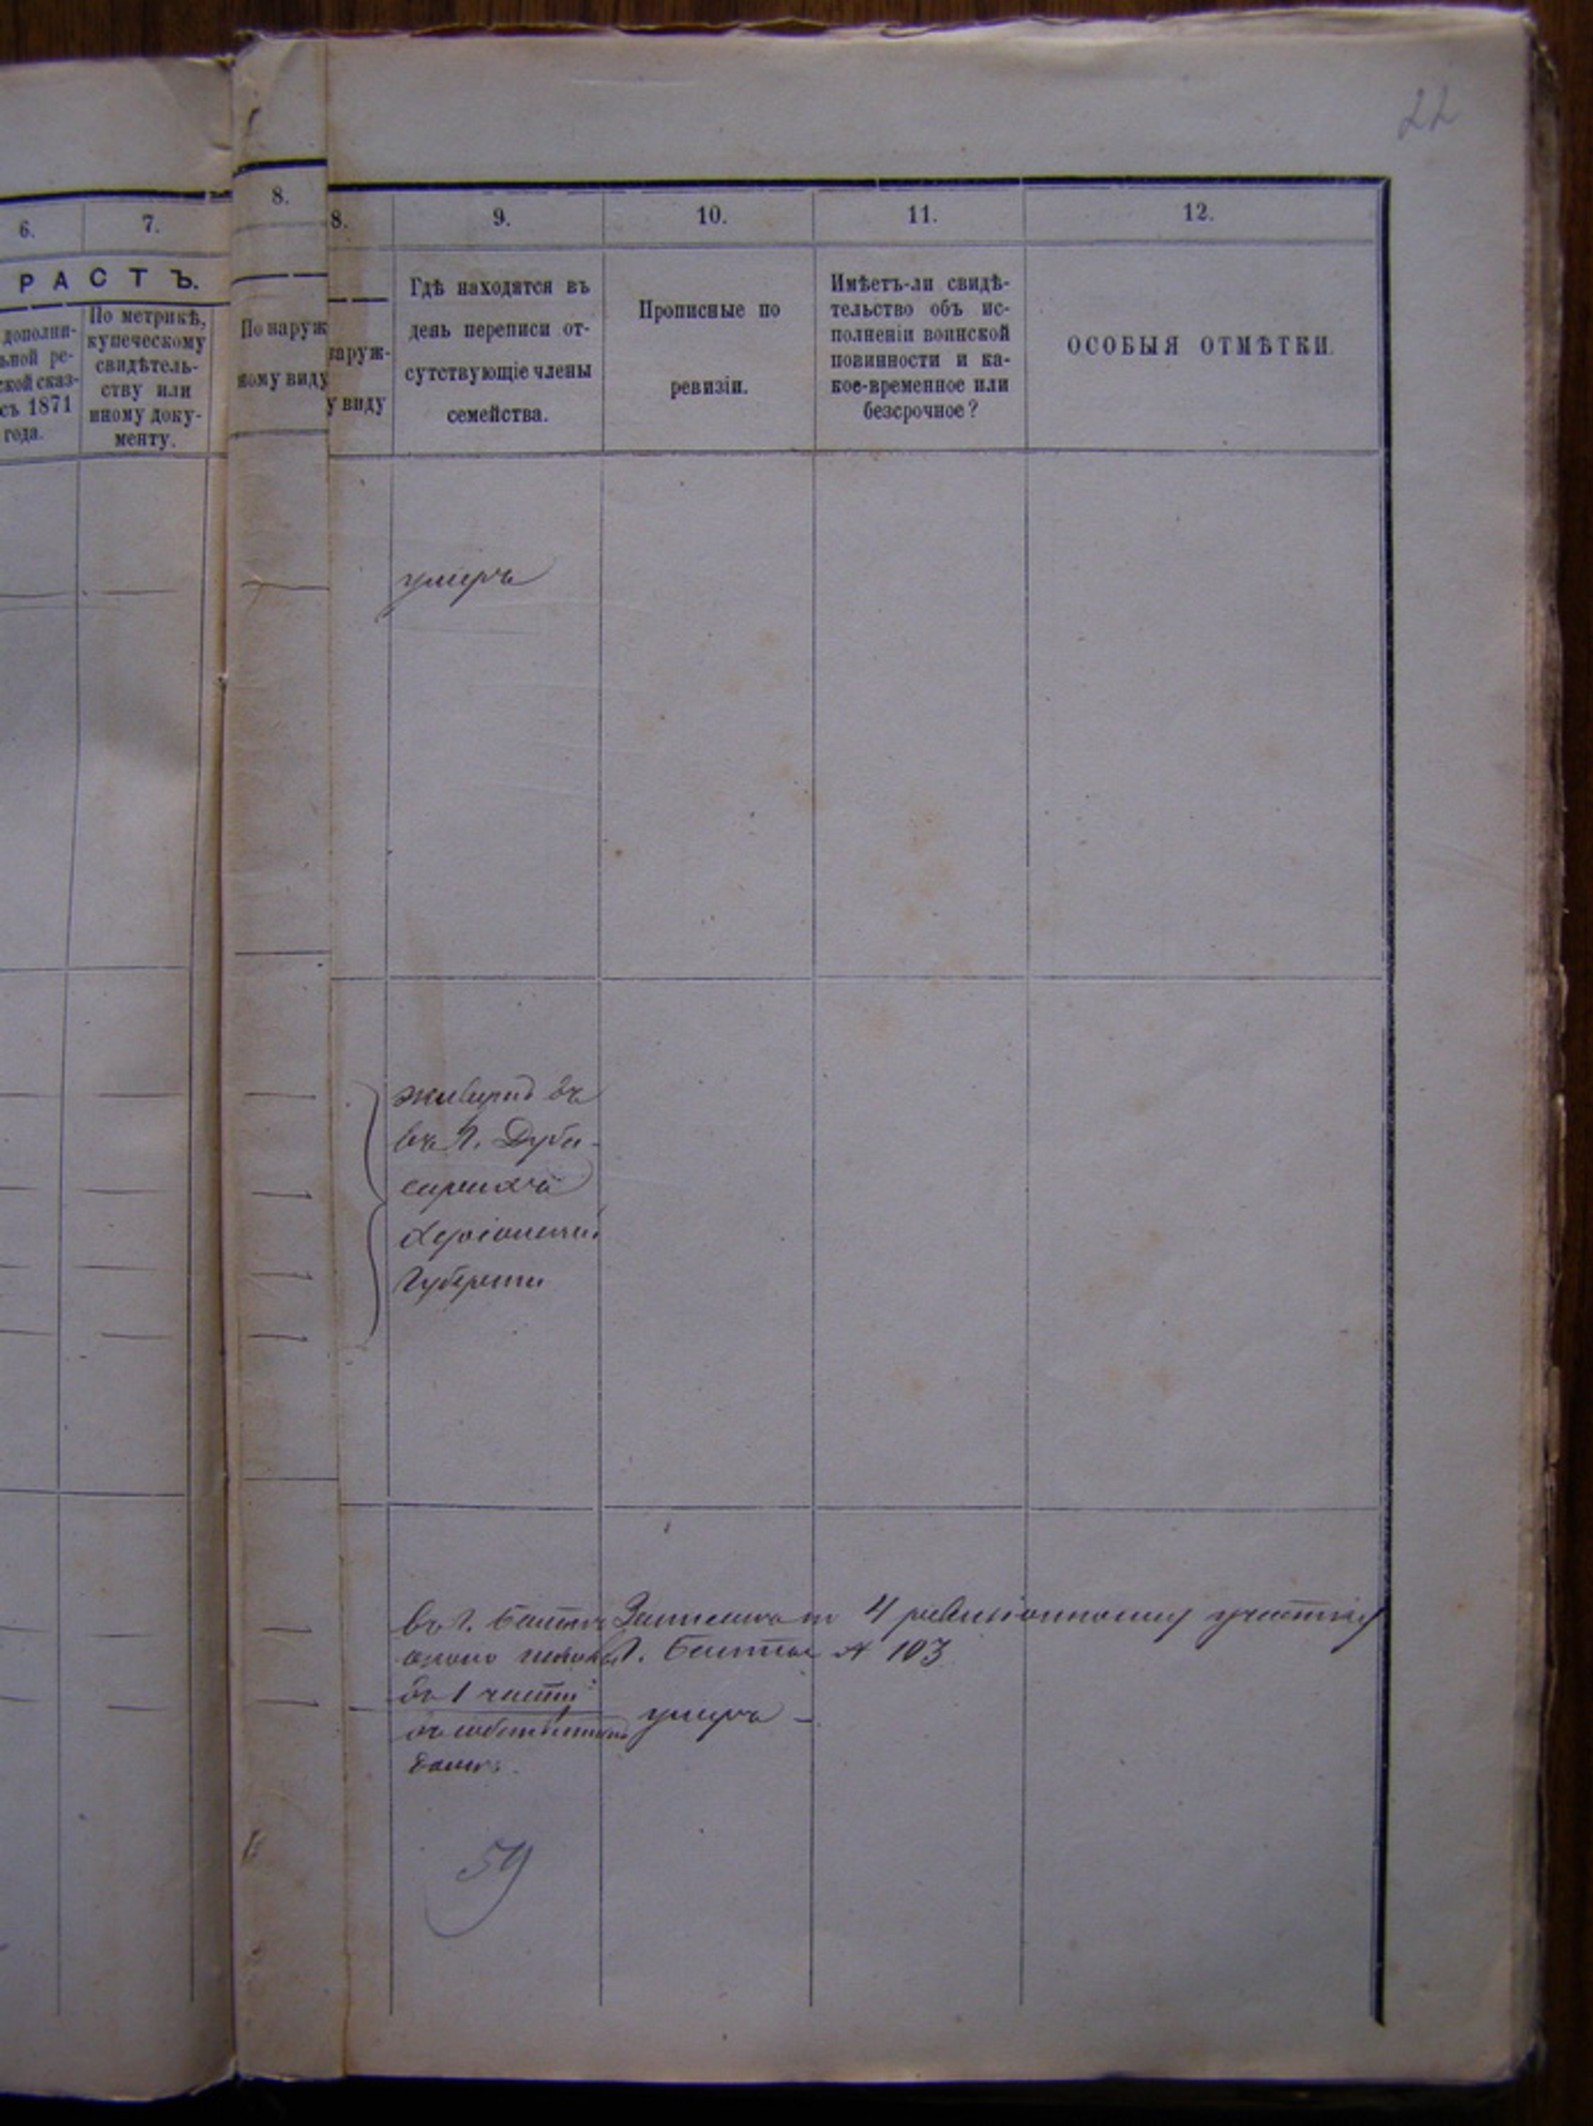 22
6.
7.
8.
8.
9.
10.
11.
12.
РАСТЪ.
дополни-
ьной ре-
ской сказ-
съ 1871
года.
По метрикѣ,
купеческому
свидѣтель-
ству или
иному доку-
менту.
По наруж
ному виду
наруж-
у виду
Гдѣ находятся въ
день переписи от-
сутствующіе члены
семейства.
Прописные по
ревизіи.
Имѣетъ-ли свидѣ-
тельство объ ис-
полненіи воинской
повинности и ка-
кое-временное или
безсрочное?
ОСОБЫЯ ОТМѢТКИ.
умеръ
въ
въ Дубо-
Херсонской
Губерніи
въ г.
4 ревизіонному участку
г. № 103
въ 1 части
въ собственномъ
домѣ.
умеръ
59